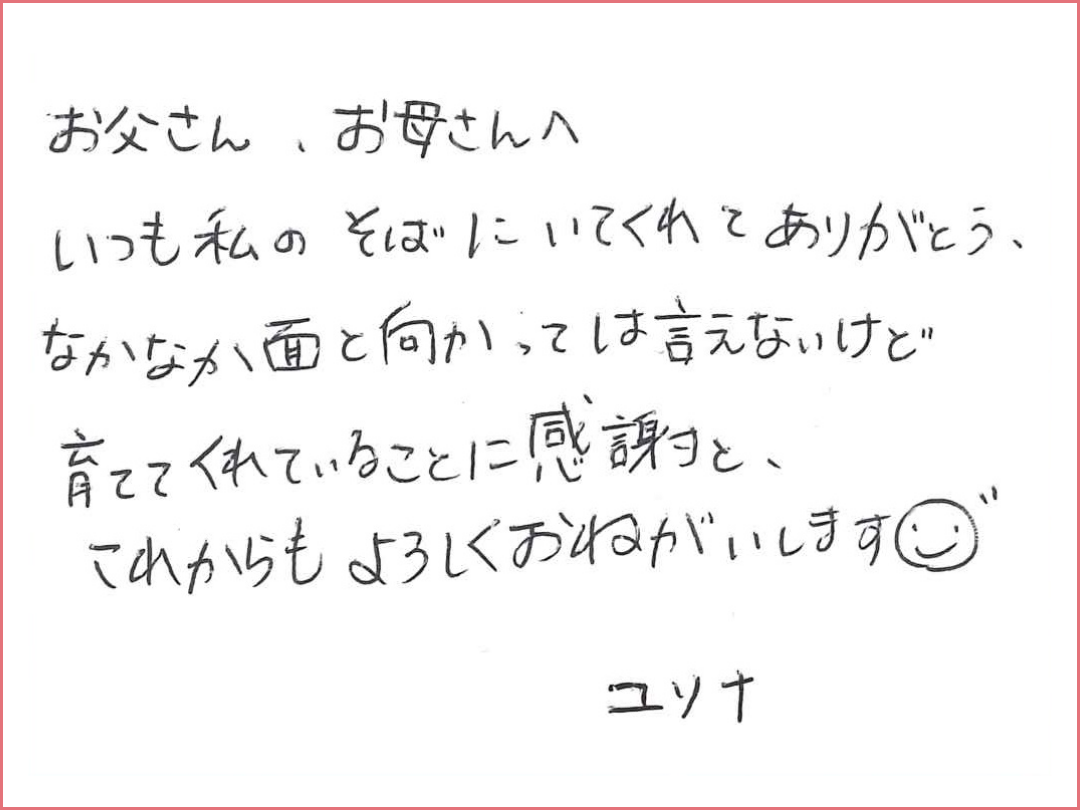 お父さん、お母さんへ
いつも私のそばにいてくれてありがとう、
なかなか面と向かっては言えないけど
育ててくれていることに感謝と、
これからもよろしくおねがいします
ユリナ